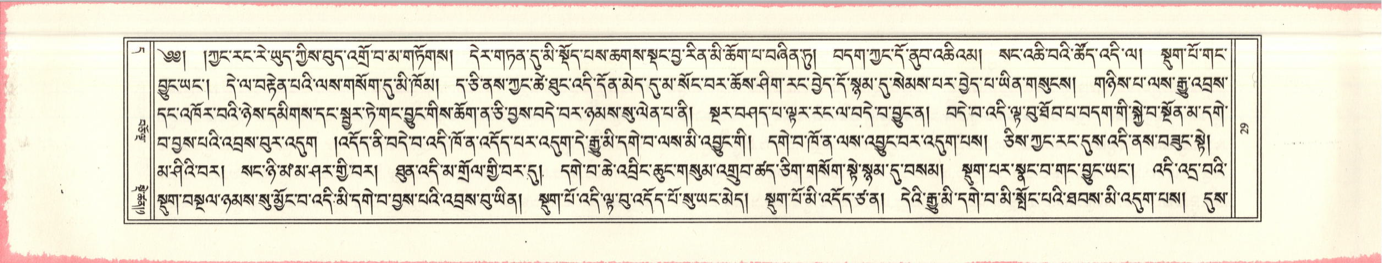 ༄༅། །ཀྱང་རང་རེ་ཡུད་ཀྱིས་བུད་འགྲོ་བ་མ་གཏོགས། དེར་གཏན་དུ་མི་སྡོད་པས་ཆགས་སྡང་བྱ་རིན་མི་ཆོག་པ་བཞིན་ཏུ། བདག་ཀྱང་དོ་ནུབ་འཆིའམ། སང་འཆི་བའི་ཚོད་འདི་ལ། སྡུག་པོ་གང་
བྱུང་ཡང་། དེ་ལ་བརྟེན་པའི་ལས་གསོག་དུ་མི་ཁོམ། ད་ཅི་ནས་ཀྱང་ཚེ་ཐུང་འདི་དོན་མེད་དུ་མ་སོང་བར་ཆོས་ཤིག་རང་བྱེད་དོ་སྙམ་དུ་སེམས་པར་བྱེད་པ་ཡིན་གསུངས། གཉིས་པ་ལས་རྒྱུ་འབྲས་
དང་འཁོར་བའི་ཉེས་དམིགས་དང་སྦྱར་ཏེ་གང་བྱུང་གིས་ཆོག་ན་ཅི་བྱས་བདེ་བར་ཉམས་སུ་ལེན་པ་ནི། སྔར་བཤད་པ་ལྟར་རང་ལ་བདེ་བ་བྱུང་ན། བདེ་བ་འདི་ལྟ་བུ་ཐོབ་པ་བདག་གི་སྐྱེ་བ་སྔོན་མ་དགེ་
བ་བྱས་པའི་འབྲས་བུར་འདུག །འདོད་ནི་བདེ་བ་འདི་ཁོ་ན་འདོད་པར་འདུག་དེ་རྒྱུ་མི་དགེ་བ་ལས་མི་འབྱུང་གི། དགེ་བ་ཁོ་ན་ལས་འབྱུང་བར་འདུག་པས། ཅིས་ཀྱང་རང་དུས་འདི་ནས་བཟུང་སྟེ།
མ་ཤིའི་བར། སང་ཉི་མ་མ་ཤར་གྱི་བར། ཐུན་འདི་མ་གྲོལ་གྱི་བར་དུ། དགེ་བ་ཆེ་འབྲིང་ཆུང་གསུམ་འགྲུབ་ཚད་ཅིག་གསོག་སྟེ་སྙམ་དུ་བསམ། སྡུག་པར་སྣང་བ་གང་བྱུང་ཡང་། འདི་འདྲ་བའི་
སྡུག་བསྔལ་ཉམས་སུ་མྱོང་བ་འདི་མི་དགེ་བ་བྱས་པའི་འབྲས་བུ་ཡིན། སྡུག་པོ་འདི་ལྟ་བུ་འདོད་པོ་སུ་ཡང་མེད། སྡུག་པོ་མི་འདོད་ཙ་ན། དེའི་རྒྱུ་མི་དགེ་བ་མི་སྤོང་པའི་ཐབས་མི་འདུག་པས། དུས་
29